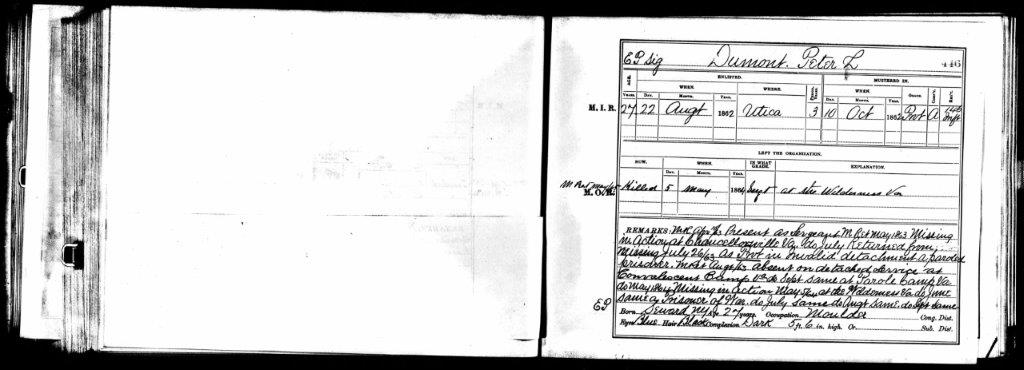 EP Sig Dumont. Peter L 446
AGE. ENLISTED. MUSTERED IN.
WHEN. WHERE. WHEN. GRADE. CO'Y. REG'T.
YEARS. DAY. MONTH. YEAR. DAY. MONTH. YEAR.
M. I. R. 27 22 Augt 1862 Utica 3 10 Oct 1862 Pvt A 146 Inft
LEFT THE ORGANIZATION.
HOW. WHEN. IN WHAT GRADE. EXPLANATION.
DAY. MONTH. YEAR.
M. O. R. Killed 5 May 1864 Sergt at the Wilderness Va
REMARKS: Present as Sergeant M Rot May 1863 Missing
in Action at Chancellorsville Va. do July Returned from
Missing July 26/63 as Pvt in Invalid detachment a paroled
prisoner. absent on detached service at
Convalescent Camp Va do Sept same at Parole Camp Va
do May 1864 Missing in Action May 5/64 at the Wilderness Va do June
same a Prisoner of War do July same do Augt same do Sept same
EP
Born Seward NY Age 27 years. Occupation Moulder Cong. Dist.
Eyes Blue Hair Black Complexion Dark 5 ft. 6 in. high. Cr. Sub. Dist.